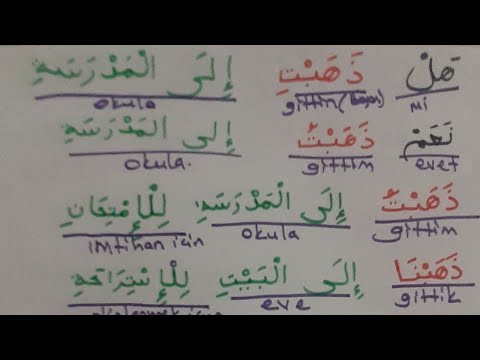 هَلْ ذَهَبْتِ إِلَى الْمَدْرَسَةِ
mi gittin (bayan) okula
نَعَمْ ذَهَبْتُ إِلَى الْمَدْرَسَةِ
evet gittim okula.
ذَهَبْتُ إِلَى الْمَدْرَسَةِ لِلْإِمْتِحَانِ
gittim okula imtihan için
ذَهَبْنَا إِلَى الْبَيْتِ لِلْإِسْتِرَاحَةِ
gittik eve